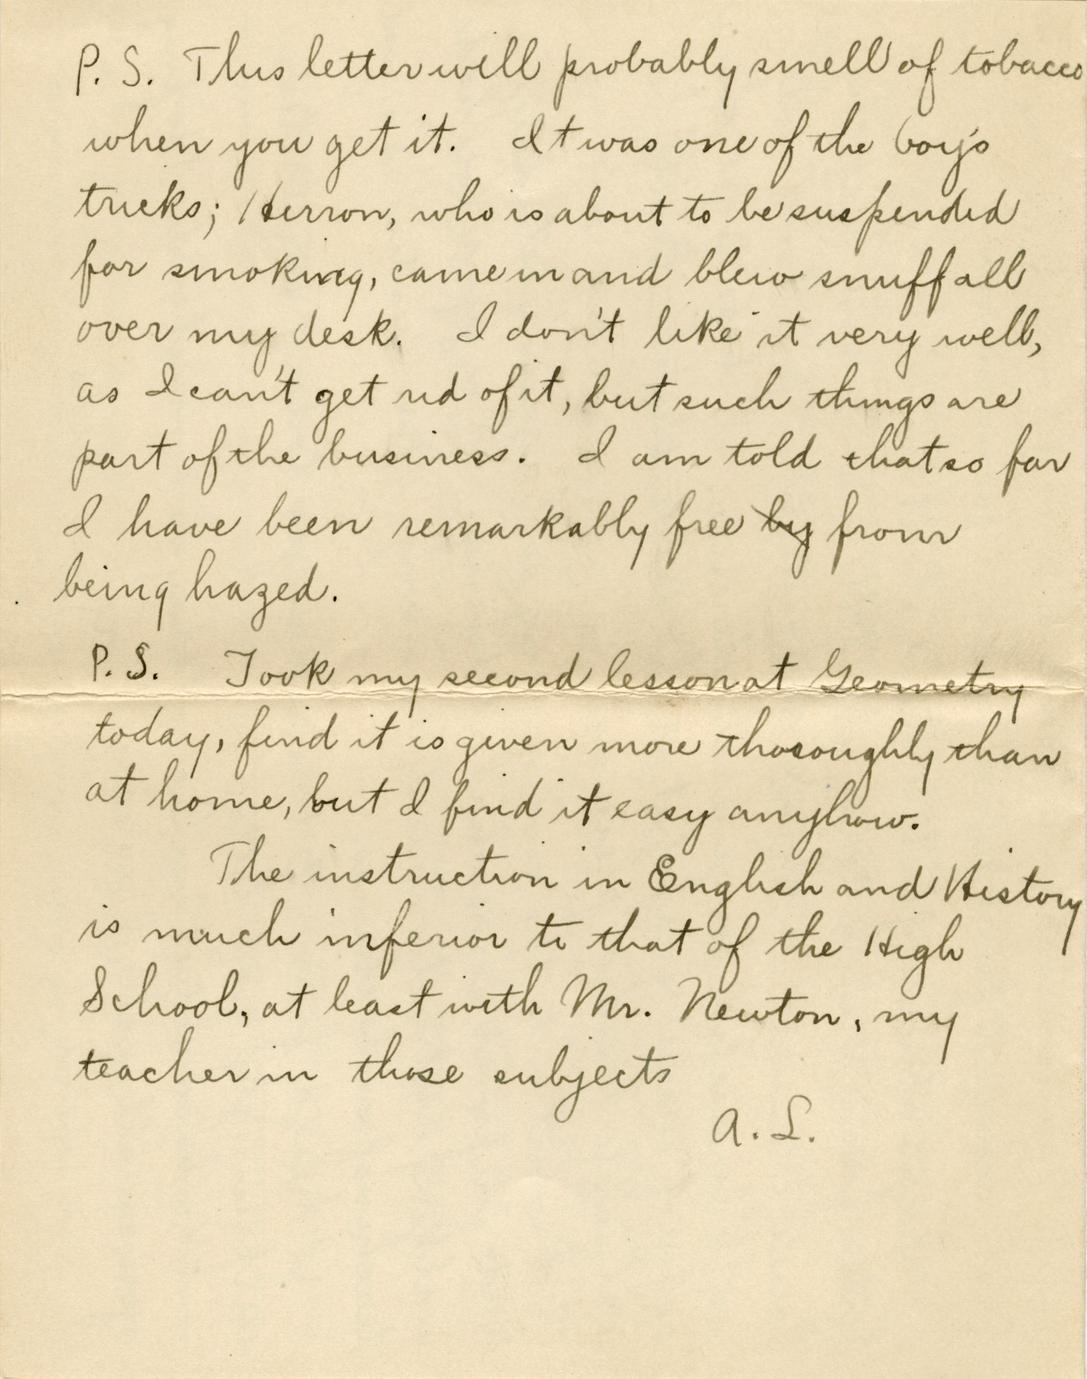 P. S. This letter will probably smell of tobacco
when you get it. It was one of the boy's
tricks; Herron, who is about to be suspended
for smoking, came in and blew snuff all
over my desk. I don't like it very well,
as I can't get rid of it, but such things are
part of the business. I am told that so far
I have been remarkably free by from
being hazed.
P. S. Took my second lesson at Geometry
today, find it is given more thoroughly than
at home, but I find it easy anyhow.
The instruction in English and History
is much inferior to that of the High
School, at least with Mr. Newton, my
teacher in those subjects
A. L.